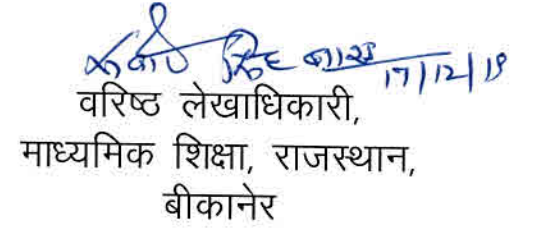 17/12/19
वरिष्ठ लेखाधिकारी,
माध्यमिक शिक्षा, राजस्थान,
बीकानेर